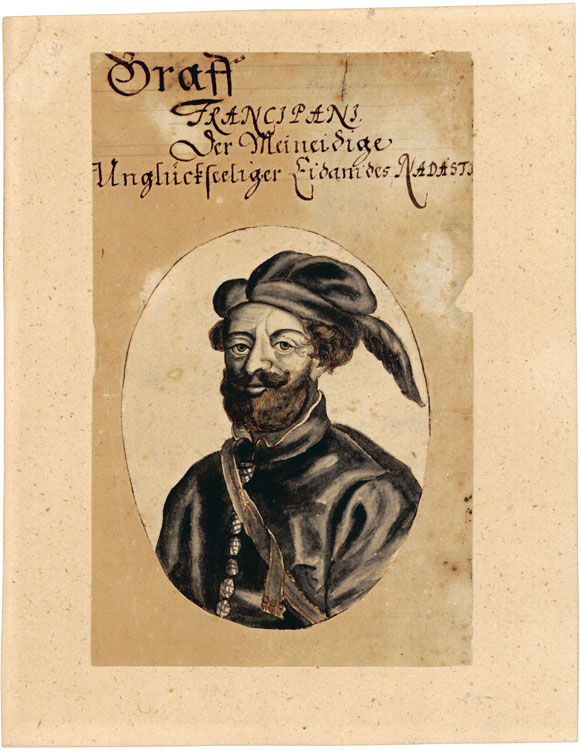 Graff
FRANCIPANI.
Der Meineidige
Unglückseeliger Eidam des NADASTI